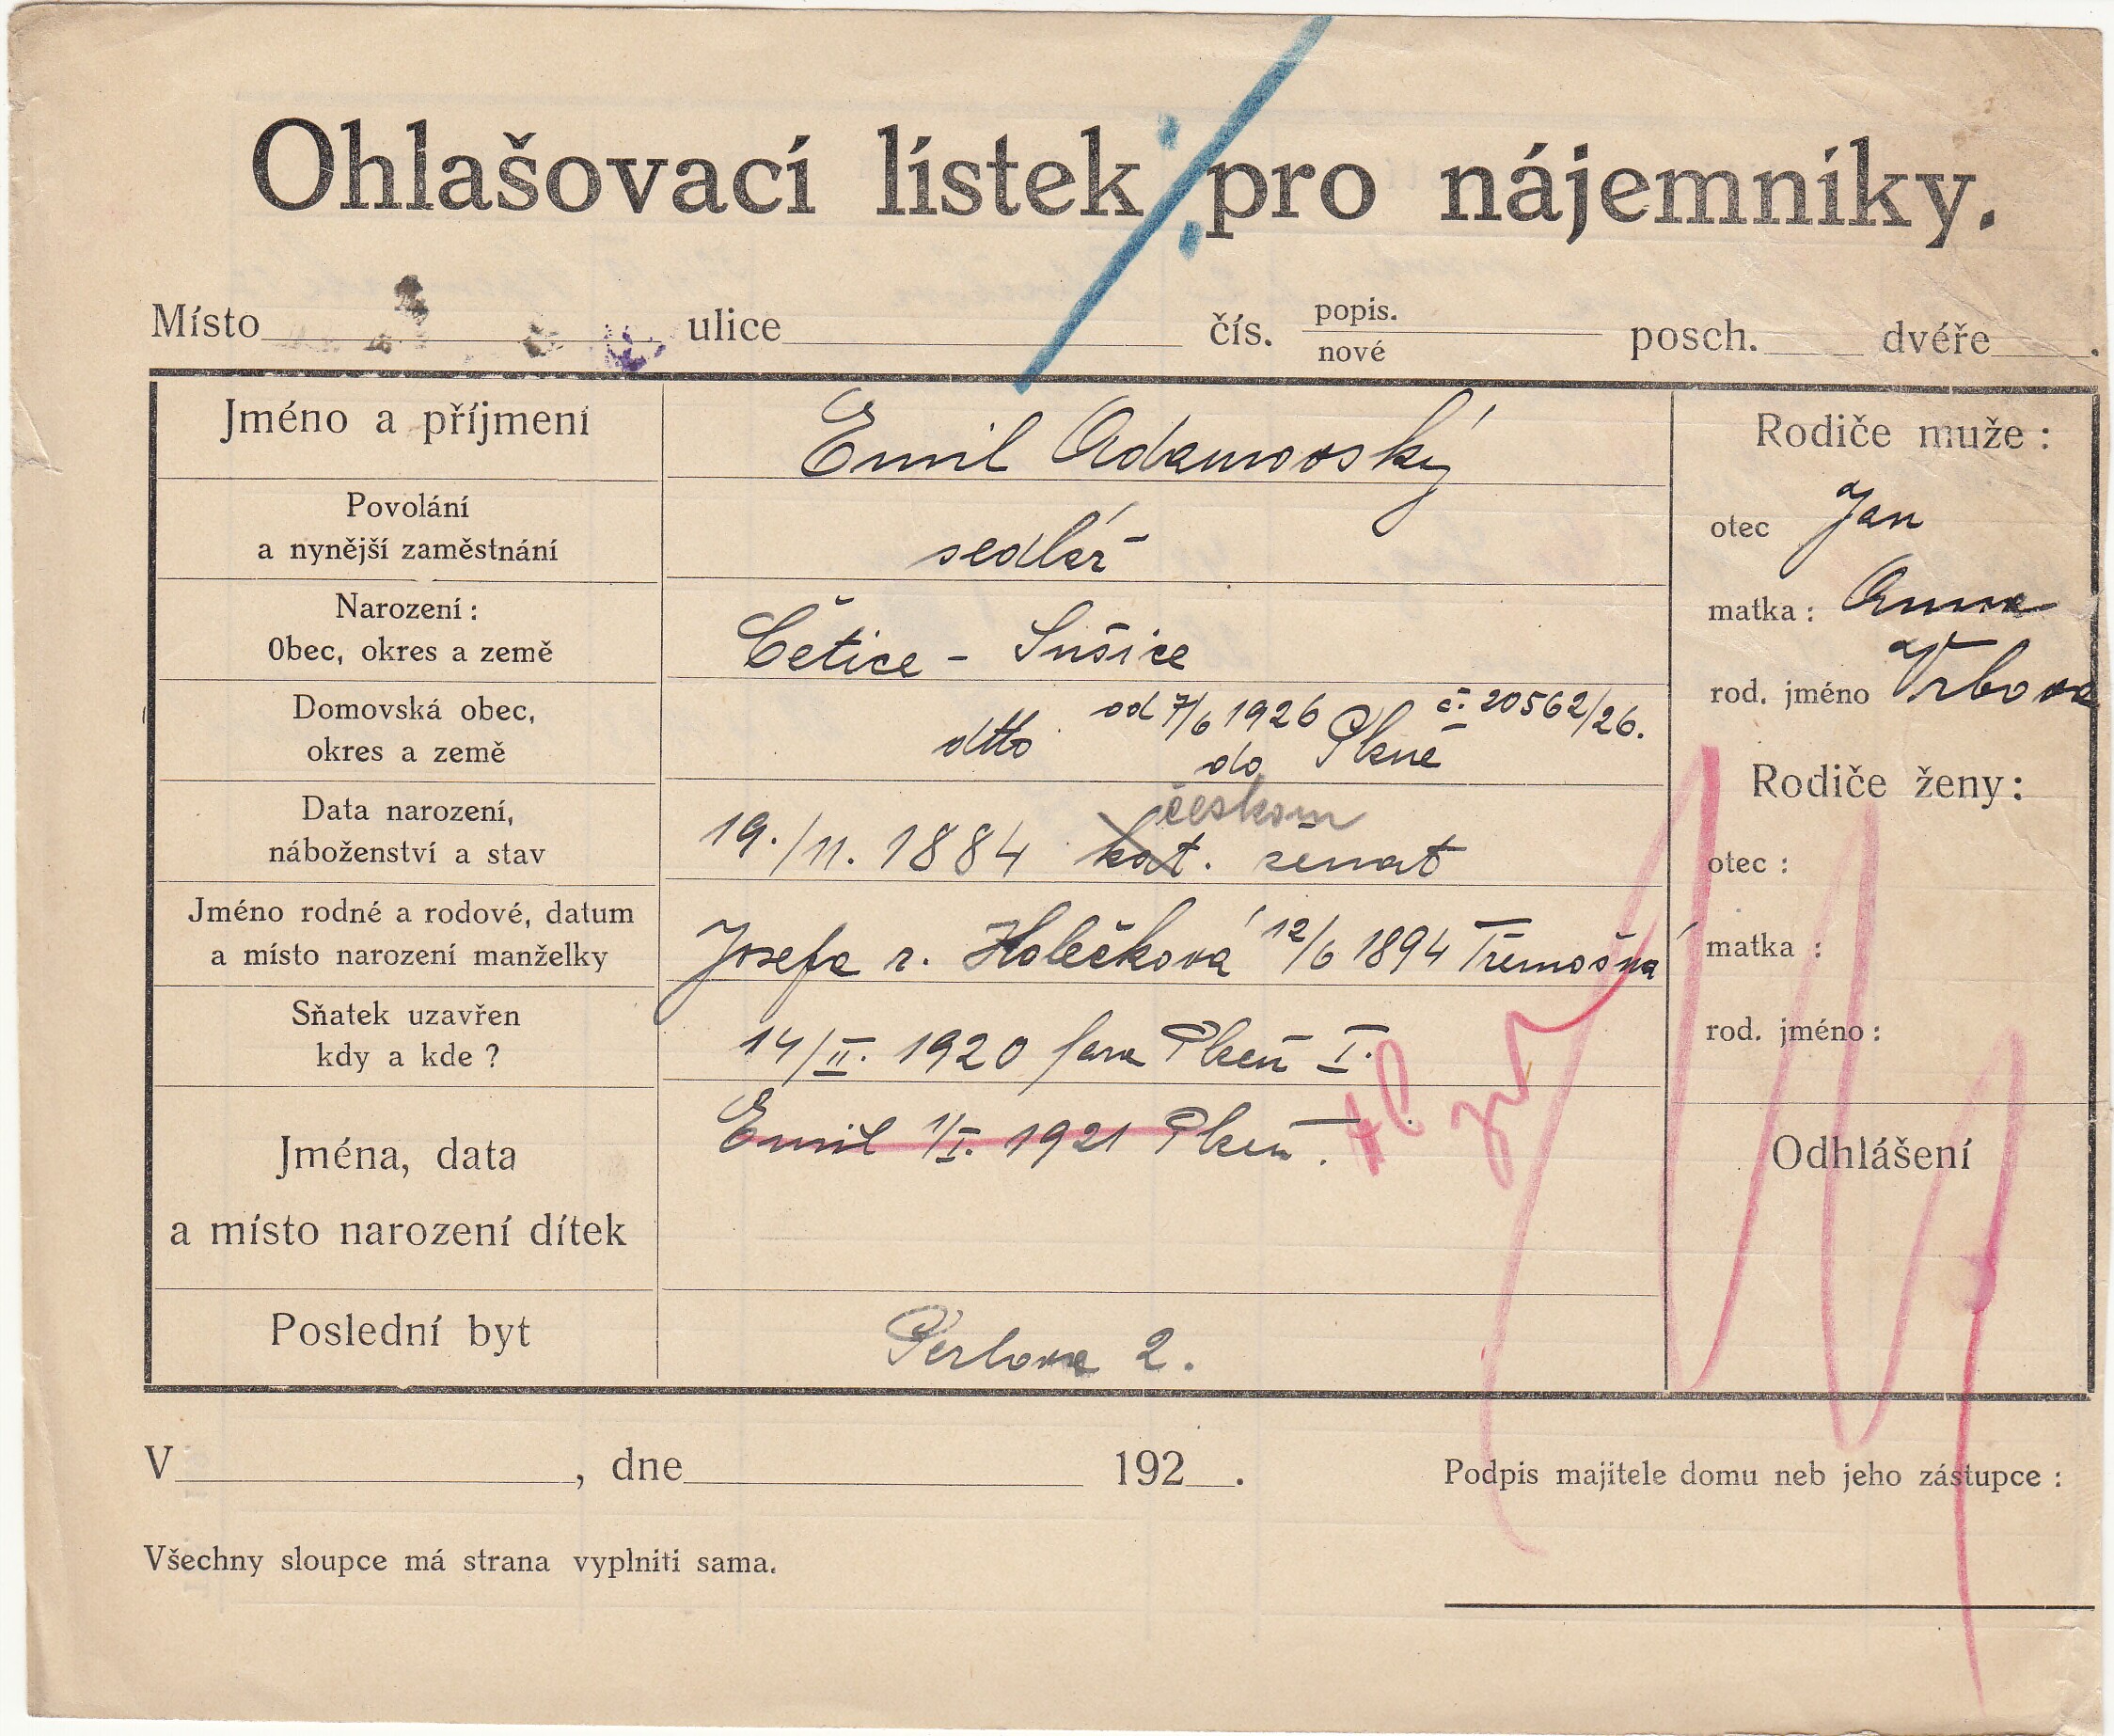 Ohlašovací lístek pro nájemníky.
Místo ulice čís. popis. nové posch. dvéře .
Jméno a příjmení Emil Adamovský
Povolání
a nynější zaměstnání sedlář
Narození:
Obec, okres a země Čětice - Sušice
Domovská obec,
okres a země dtto od 7/6 1926 č: 20562/26.
do Plzně
Data narození,
náboženství a stav 19./11. 1884 kat. českom ženat
Jméno rodné a rodové, datum
a místo narození manželky Josefa r. Holečková 12/6 1894 Třemošná
Sňatek uzavřen
kdy a kde? 14/II. 1920 fara Plzeň I.
Jména, data
a místo narození dítek Emil 1/I. 1921 Plzeň.
Poslední byt Perlova 2.
Rodiče muže:
otec Jan
matka: Anna
rod. jméno Vrbova
Rodiče ženy:
otec:
matka:
rod. jméno:
Odhlášení
V , dne 192 .
Podpis majitele domu neb jeho zástupce:
Všechny sloupce má strana vyplniti sama.